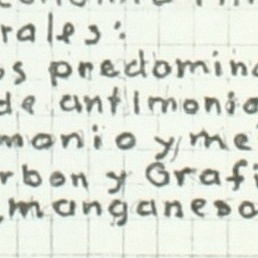 rales:
os predomina
de antimonio
monio y me
rbon y Grafi
,manganeso